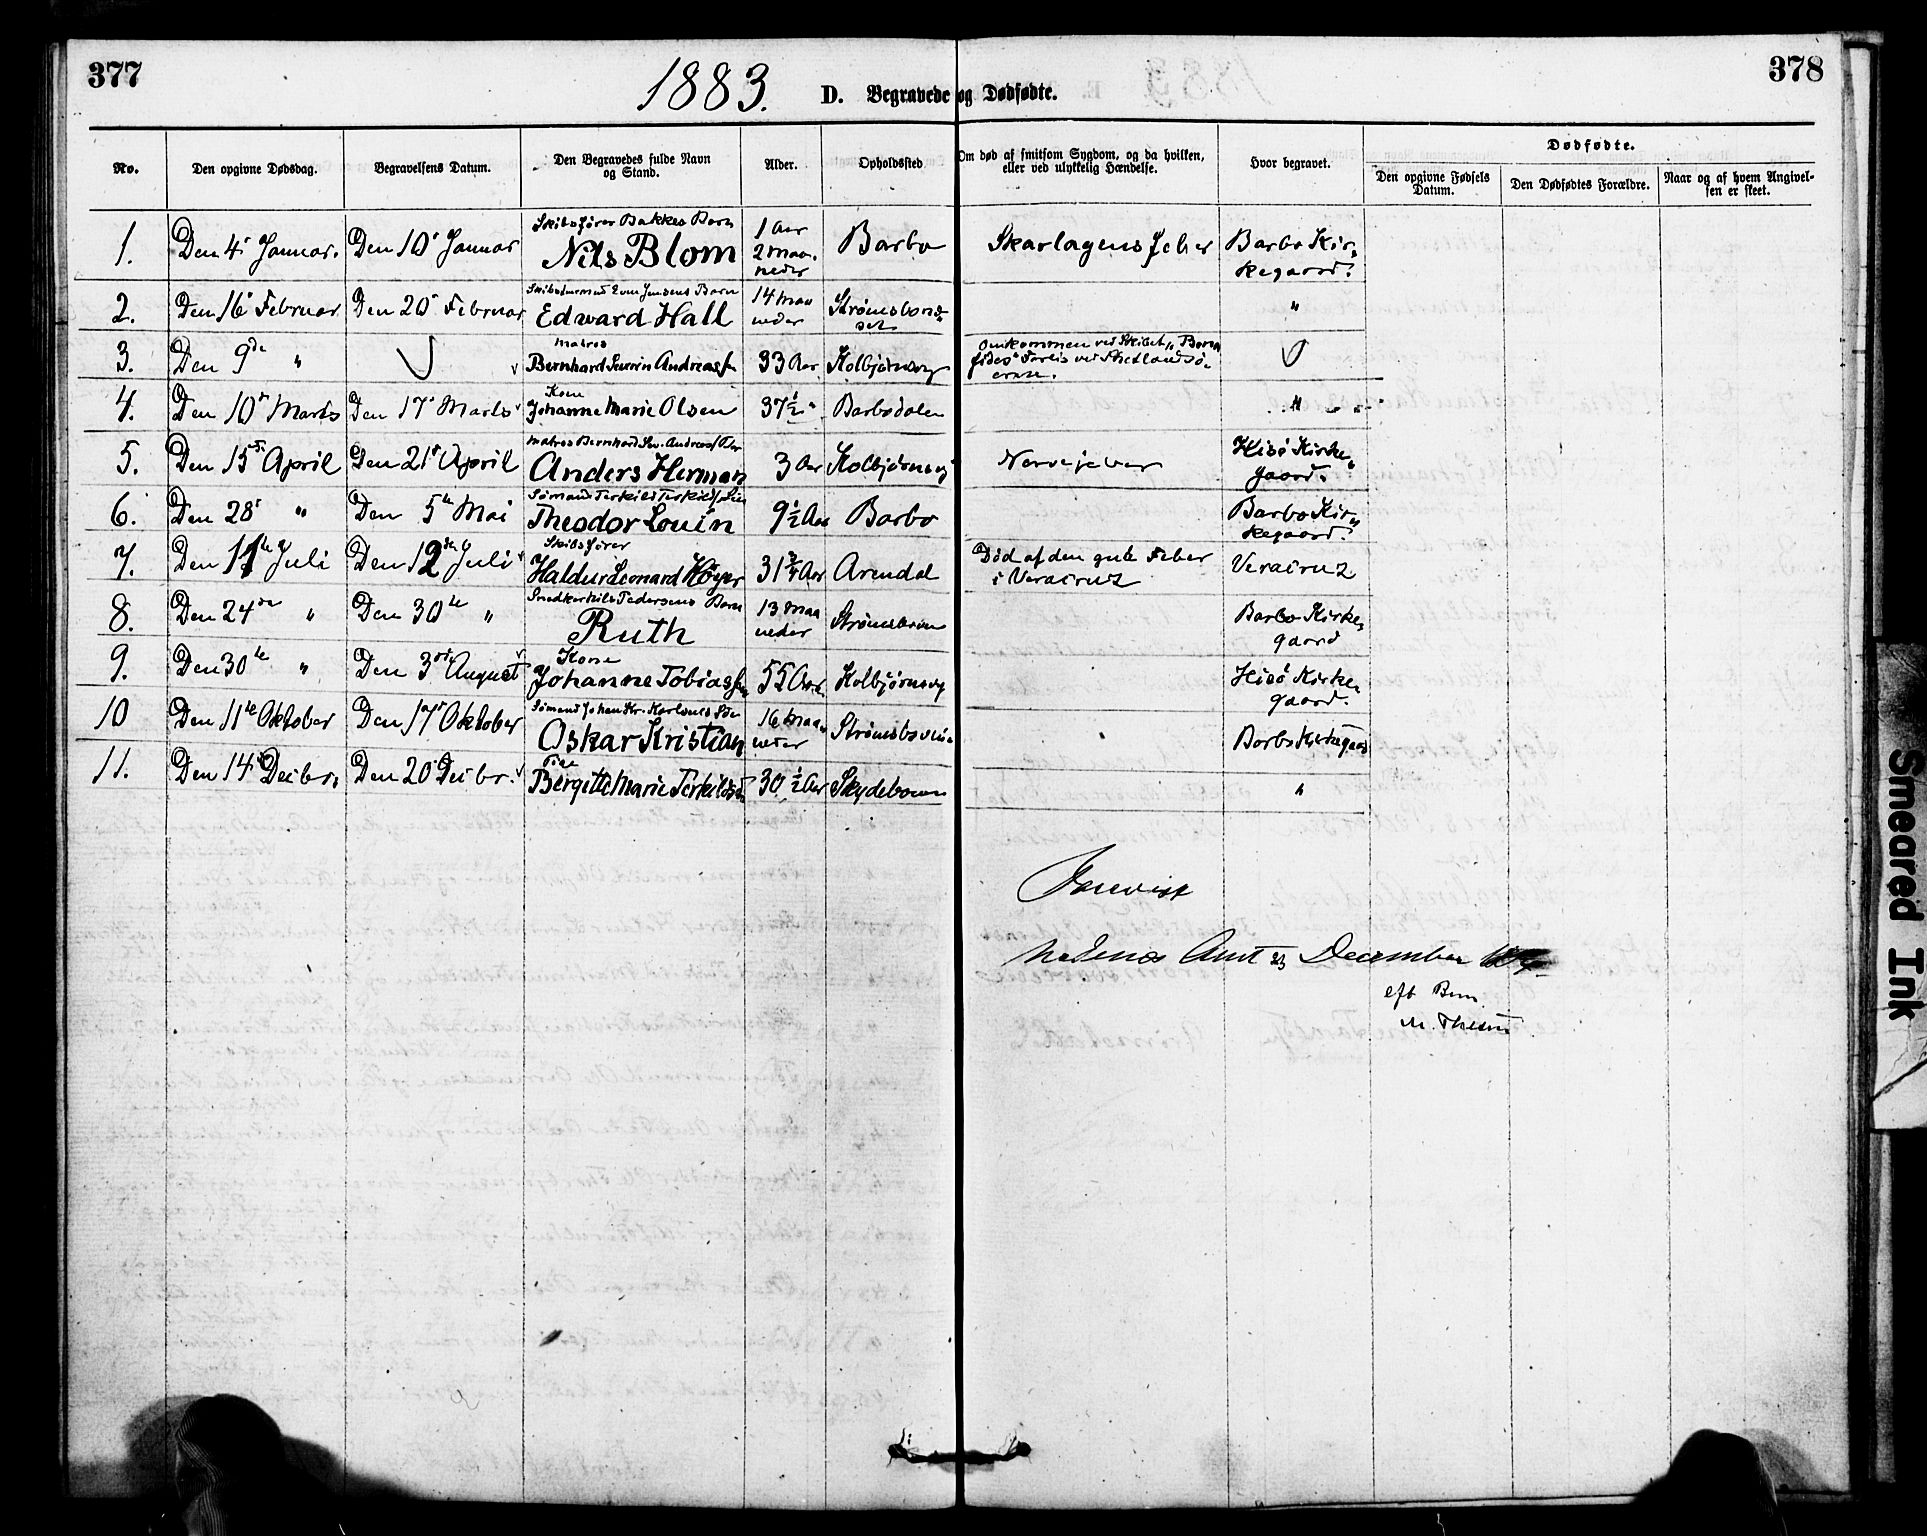 377
378
1883.
D. Begravede og Dødfødte.
No. Den opgivne Dødsdag. Begravelsens Datum. Den Begravedes fulde Navn og Stand. Alder. Opholdssted Om død af smitsom Sygdom, og da hvilken, eller ved ulykkelig Hændelse. Hvor begravet. Dødfødte. Den opgivne Fødsels Datum. Den Dødfødtes Forældre. Naar og af hvem Angivelsen er skeet.
1. Den 4 Januar. Den 10 Januar Skibsfører Bakkes Barn Nils Blom 1 Aar 2 Maaneder Barbo Skarlagensfeber Barbo Kirkegaard.
2. Den 16 Februar Den 20 Februar Jensens Barn Edward Hall 14 Maaneder "
3. Den 9de " Matros Bernhard Severin Andreassen 33 Aar Kolbjørnsvig Omkommen ved Skibet "Bona fides" Forlis ved Shetlandsøerne.
4. Den 10 Marts Den 17 Marts Kone Johanne Marie Olsen 37½ " Barbodalen "
5. Den 15 April Den 21 April Matros Bernhard Sev. Andreas Anders Herman 3 Aar Kolbjørnsvig Nervefeber Hisø Kirkegaard.
6. Den 28 " Den 5te Mai Sømand Terkild Terkildsøn Theodor Louin 9½ Aar Barbo Barbo Kirkegaard.
7. Den 11te Juli Den 12te Juli Skibsfører Haldur Leonard Høyer 31¾ Aar Arendal Død af den gule Feber i Veracruz Veracruz
8. Den 24de " Den 30te " Snedker Nils Pedersens Barn Ruth 13 Maaneder Barbo Kirkegaard
9. Den 30te " Den 3die August Kone Johanne Tobiassen 55 Aar. Kolbjørnsvig Hisø Kirkegaard.
10 Den 11te Oktober Den 17 Oktober Sømand Johan Kr. Karlsens Søn Oskar Kristian 16 Maaneder Barbo Kirkegaard
11. Den 14 Decibr. Den 20 Decibr. Pige Bergitte Marie Terkildsen 30½ Aar Skydebanen "
Forevist
Nedenes Amt 23 December
eft Bem
M. Thesen
Smeared Ink